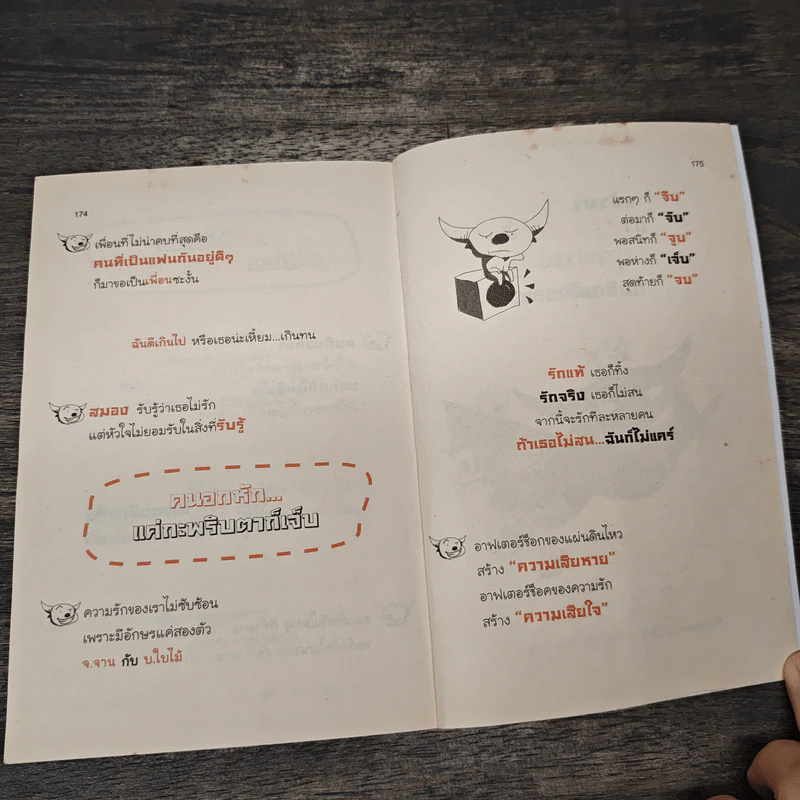 174
เพื่อนที่ไม่น่าคบที่สุดคือ
คนที่เป็นแฟนกันอยู่ดีๆ
ก็มาขอเป็นเพื่อนซะงั้น
ฉันดีเกินไป หรือเธอน่ะเหี้ยม...เกินทน
สมอง รับรู้ว่าเธอไม่รัก
แต่หัวใจไม่ยอมรับในสิ่งที่รับรู้
คนอกหัก...
แค่กะพริบตาก็เจ็บ
ความรักของเราไม่ซับซ้อน
เพราะมีอักษรแค่สองตัว
จ.จาน กับ บ.ใบไม้
175
แรกๆ ก็ “จีบ”
ต่อมาก็ “จับ”
พอสนิทก็ “จูบ”
พอห่างก็ “เจ็บ”
สุดท้ายก็ “จบ”
รักแท้ เธอก็ทิ้ง
รักจริง เธอก็ไม่สน
จากนี้จะรักทีละหลายคน
ถ้าเธอไม่สน...ฉันก็ไม่แคร์
อาฟเตอร์ช็อกของแผ่นดินไหว
สร้าง “ความเสียหาย”
อาฟเตอร์ช็อคของความรัก
สร้าง “ความเสียใจ”